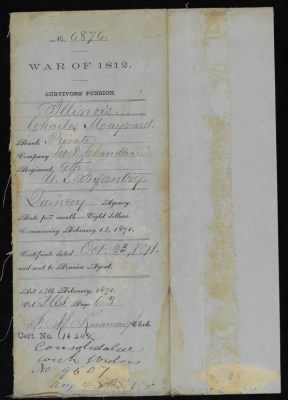 No. 6876.
WAR OF 1812.
SURVIVORS PENSION
Illinois.
Charles Maynard.
Rank Private
Company D. Chandler
Regiment 9th
U. S. Infantry
Quincy Agency.
Rate per month—Eight dollars.
Commencing February 14, 1871.
Certificate dated Oct. 23, 1871.
and sent to Pension Agent.
Act 14th February, 1871.
Page 63
Clerk.
Cert. No. 16242
Consolidated
with Widows
No 9507